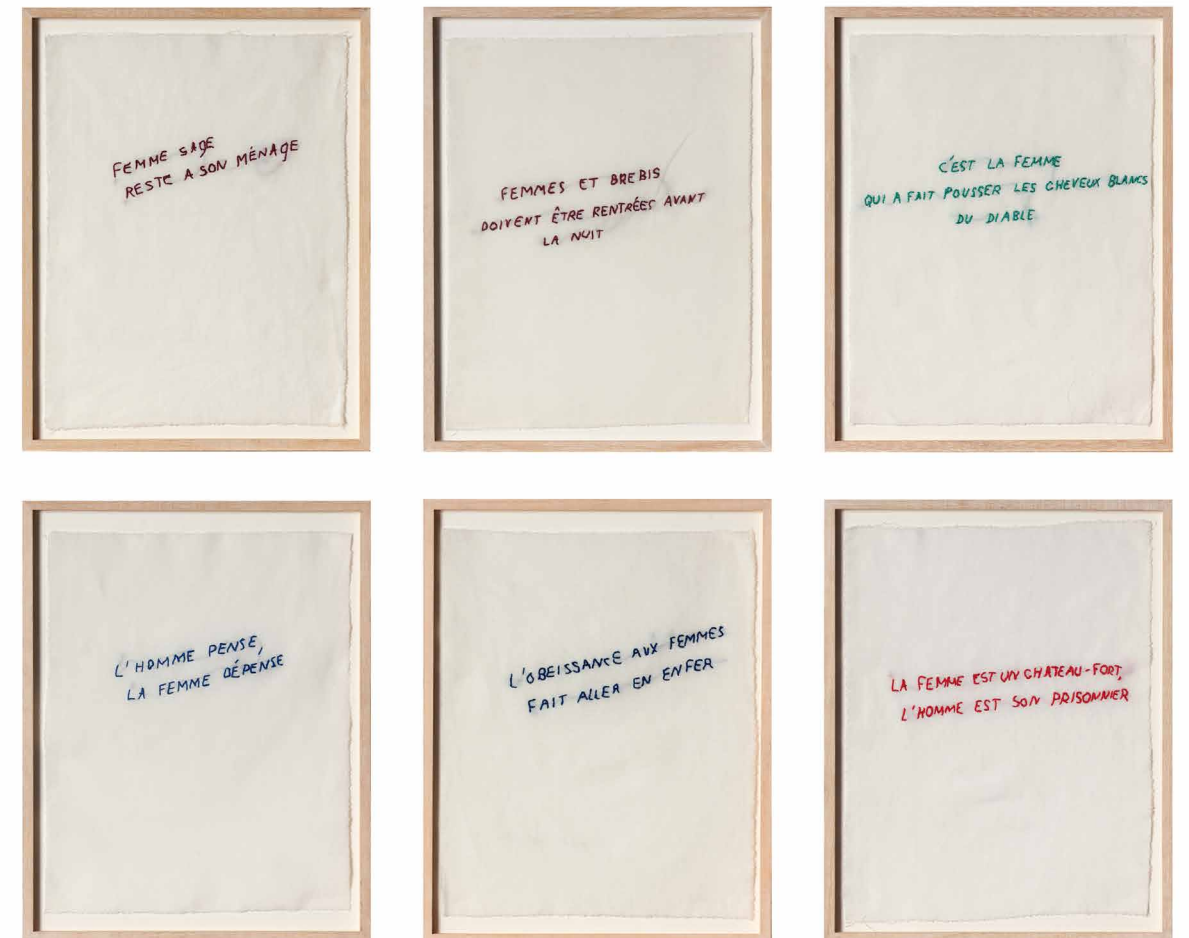 FEMME SAGE
RESTE A SON MÉNAGE
FEMMES ET BREBIS
DOIVENT ÊTRE RENTRÉES AVANT
LA NUIT
C'EST LA FEMME
QUI A FAIT POUSSER LES CHEVEUX BLANCS
DU DIABLE
L'HOMME PENSE,
LA FEMME DÉPENSE
L'OBEISSANCE AUX FEMMES
FAIT ALLER EN ENFER
LA FEMME EST UN CHATEAU-FORT,
L'HOMME EST SON PRISONNIER